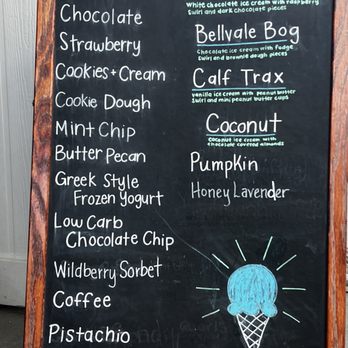 Chocolate
Strawberry
Cookies + Cream
Cookie Dough
Mint Chip
Butter Pecan
Greek Style
Frozen Yogurt
Low Carb
Chocolate Chip
Wildberry Sorbet
Coffee
Pistachio
White chocolate ice cream with raspberry
swirl and dark chocolate pieces
Bellvale Bog
Chocolate ice cream with fudge
swirl and brownie dough pieces
Calf Trax
Vanilla ice cream with peanut butter
swirl and mini peanut butter cups
Coconut
Coconut ice cream with
chocolate covered almonds
Pumpkin
Honey Lavender